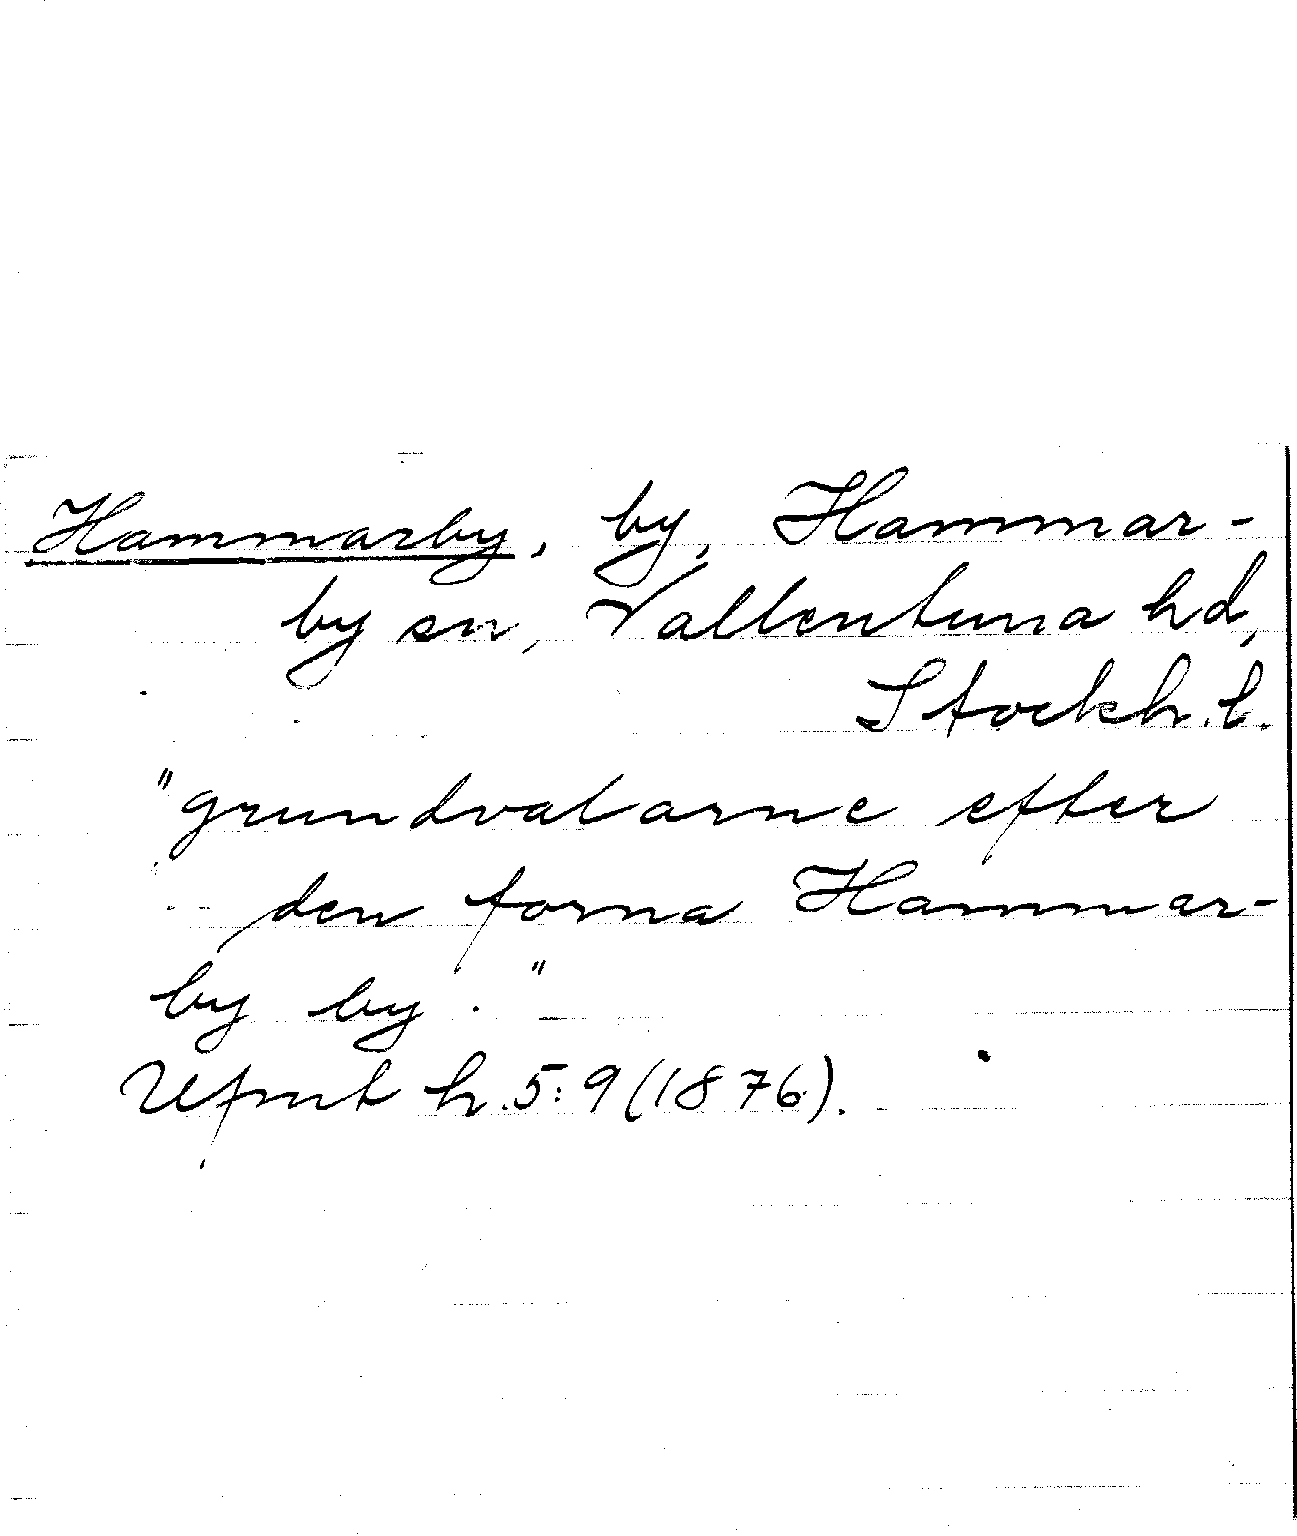 Hammarby, by, Hammar-
by sn, Vallentuna hd,
Stockh. l.
"grundvalarne efter
den forna Hammar-
by by."
Ufmt h. 5:9 (1876).